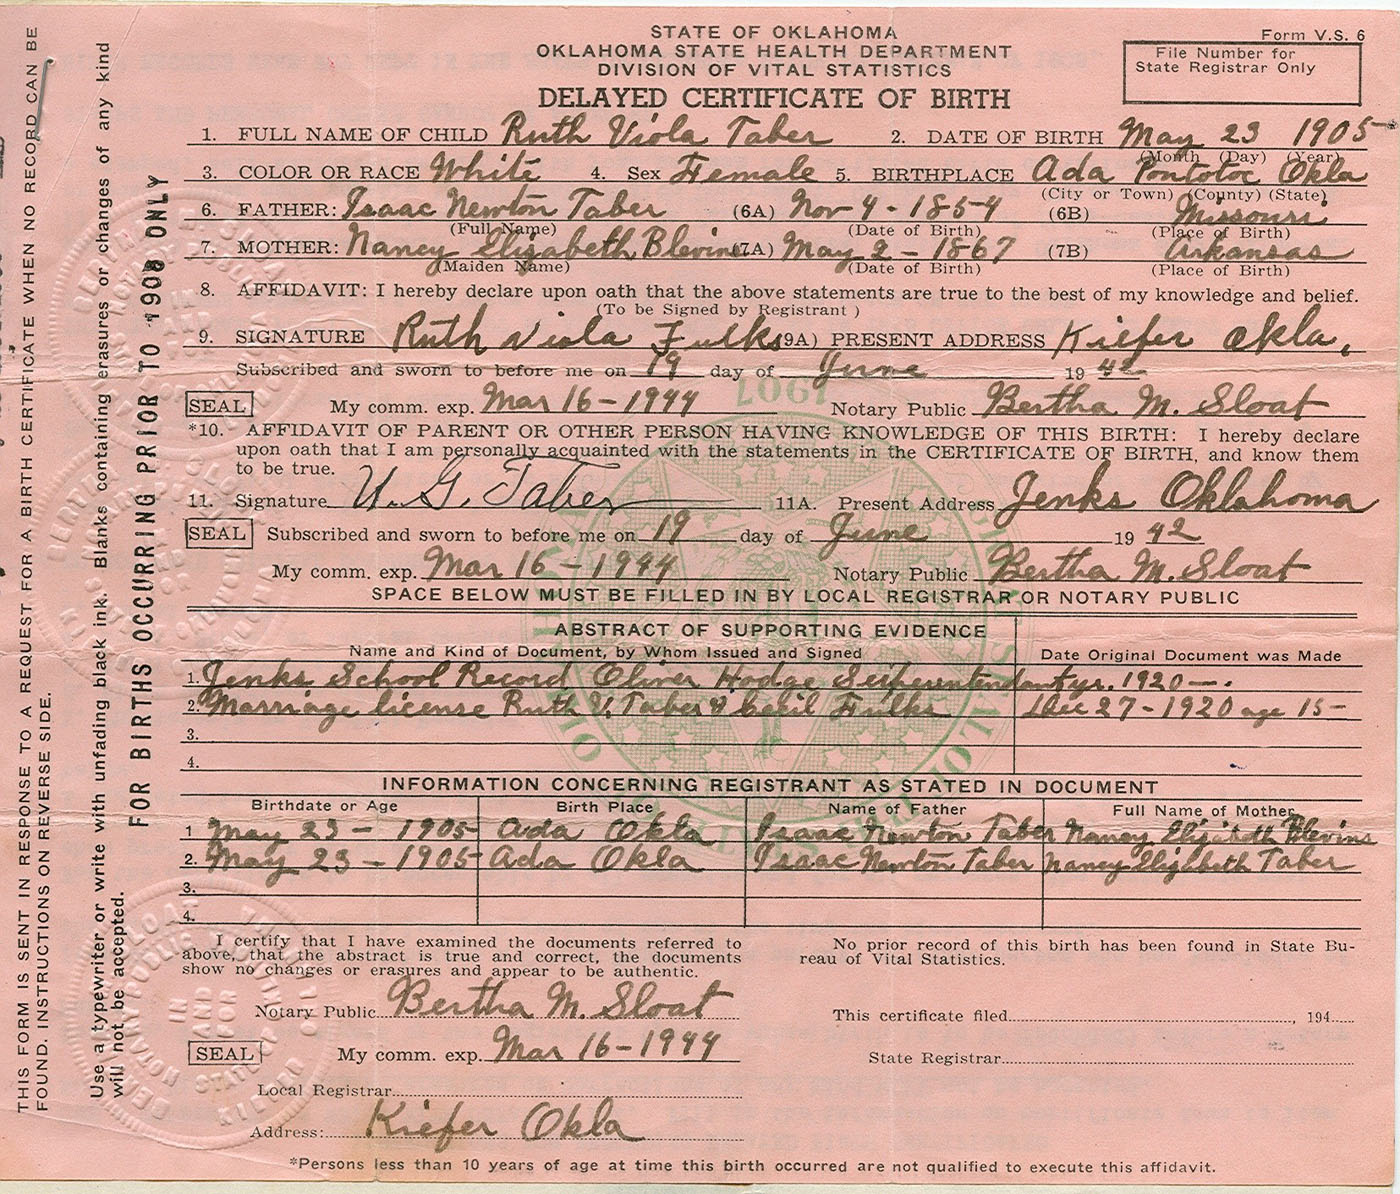 STATE OF OKLAHOMA
OKLAHOMA STATE HEALTH DEPARTMENT
DIVISION OF VITAL STATISTICS
DELAYED CERTIFICATE OF BIRTH
Form V.S. 6
File Number for
State Registrar Only
1. FULL NAME OF CHILD Ruth Viola Taber 2. DATE OF BIRTH May 23 1905
(Month) (Day) (Year)
3. COLOR OR RACE White 4. Sex Female 5. BIRTHPLACE Ada Pontotoc Okla
(City or Town) (County) (State)
6. FATHER: Isaac Newton Taber (6A) Nov 4 - 1854 (6B) Missouri
(Full Name) (Date of Birth) (Place of Birth)
7. MOTHER: Nancy Elizabeth Blevins (7A) May 2 - 1867 (7B) Arkansas
(Maiden Name) (Date of Birth) (Place of Birth)
8. AFFIDAVIT: I hereby declare upon oath that the above statements are true to the best of my knowledge and belief.
(To be Signed by Registrant)
9. SIGNATURE Ruth Viola Fulks (9A) PRESENT ADDRESS Kiefer Okla,
Subscribed and sworn to before me on 19 day of June 1942
SEAL My comm. exp. Mar 16 - 1944 Notary Public Bertha M. Sloat
*10. AFFIDAVIT OF PARENT OR OTHER PERSON HAVING KNOWLEDGE OF THIS BIRTH: I hereby declare
upon oath that I am personally acquainted with the statements in the CERTIFICATE OF BIRTH, and know them
to be true.
11. Signature U. G. Taber 11A. Present Address Jenks Oklahoma
SEAL Subscribed and sworn to before me on 19 day of June 1942
My comm. exp. Mar 16 - 1944 Notary Public Bertha M. Sloat
SPACE BELOW MUST BE FILLED IN BY LOCAL REGISTRAR OR NOTARY PUBLIC
ABSTRACT OF SUPPORTING EVIDENCE
Name and Kind of Document, by Whom Issued and Signed Date Original Document was Made
1. Jenks School Record Oliver Hodge yr. 1920 -.
2. Marriage license Ruth V. Taber & Cecil Fulks Dec 27 - 1920 age 15 -
3.
4.
INFORMATION CONCERNING REGISTRANT AS STATED IN DOCUMENT
Birthdate or Age Birth Place Name of Father Full Name of Mother
1 May 23 - 1905 Ada Okla Isaac Newton Taber Nancy Elizabeth Blevins
2. May 23 - 1905 Ada Okla Isaac Newton Taber Nancy Elizabeth Taber
3.
4.
I certify that I have examined the documents referred to
above, that the abstract is true and correct, the documents
show no changes or erasures and appear to be authentic.
Notary Public Bertha M. Sloat
SEAL My comm. exp. Mar 16 - 1944
Local Registrar
Address: Kiefer Okla
No prior record of this birth has been found in State Bu-
reau of Vital Statistics.
This certificate filed , 194
State Registrar
*Persons less than 10 years of age at time this birth occurred are not qualified to execute this affidavit.
THIS FORM IS SENT IN RESPONSE TO A REQUEST FOR A BIRTH CERTIFICATE WHEN NO RECORD CAN BE
FOUND. INSTRUCTIONS ON REVERSE SIDE.
Use a typewriter or write with unfading black ink. Blanks containing erasures or changes of any kind
will not be accepted.
FOR BIRTHS OCCURRING PRIOR TO 1908 ONLY
1907